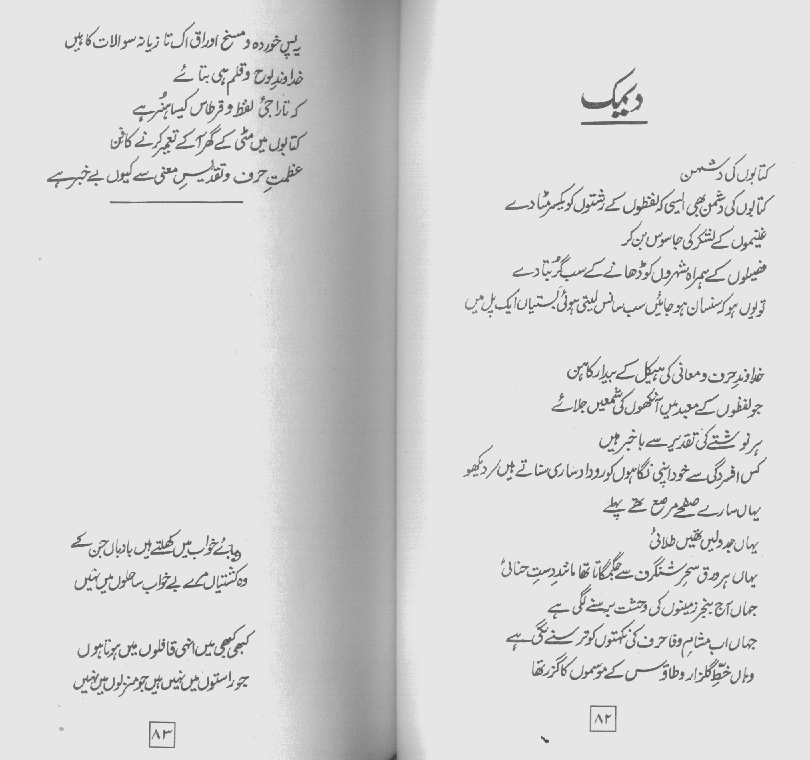 دیمک
کتابوں کی دشمن
کتابوں کی دشمن بھی ایسی کہ لفظوں کے رشتوں کو یکسر مٹا دے
غنیموں کے لشکر کی جاسوس بن کر
فصیلوں کے ہمراہ شہروں کو ڈھانے کے سب گُر بتا دے
تو یوں ہو کہ سنسان ہو جائیں سب سانس لیتی ہوئی بستیاں ایک پل میں
خداوندِ حرف و معانی کی ہیکل کے بیدار کاہن
جو لفظوں کے معبد میں آنکھوں کی شمعیں جلائے
ہر نوشتے کی تقدیر سے باخبر ہیں
کس افسردگی سے خود اپنی نگاہوں کو روداد ساری سناتے ہیں / دیکھو
یہاں سارے صفحے مرصع تھے پہلے
یہاں جدولیں تھیں طلائی
یہاں ہر ورق سحرِ شنگرف سے جگمگاتا تھا مانندِ دستِ حنائی
جہاں آج بنجر زمینوں کی وحشت برسنے لگی ہے
جہاں اب مشامِ وفا حرف کی نکہتوں کو ترسنے لگی ہے
وہاں خطِّ گلزار و طاؤس کے موسموں کا گزر تھا
۸۲
یہ پس خوردہ و مسخ اوراق اک تازیانہ سوالات کا ہیں
خداوندِ لوح و قلم ہی بتائے
کہ تاراجیٔ لفظ و قرطاس کیسا ہنر ہے
کتابوں میں مٹی کے گھر آ کے تعمیر کرنے کا فن
عظمتِ حرف و تقدیسِ معنی سے کیوں بے خبر ہے
ہوائے خواب میں کھلتے ہیں بادباں جن کے
وہ کشتیاں مرے بے خواب ساحلوں میں نہیں
کبھی کبھی میں انہی قافلوں میں ہوتا ہوں
جو راستوں میں نہیں ہیں جو منزلوں میں نہیں
۸۳